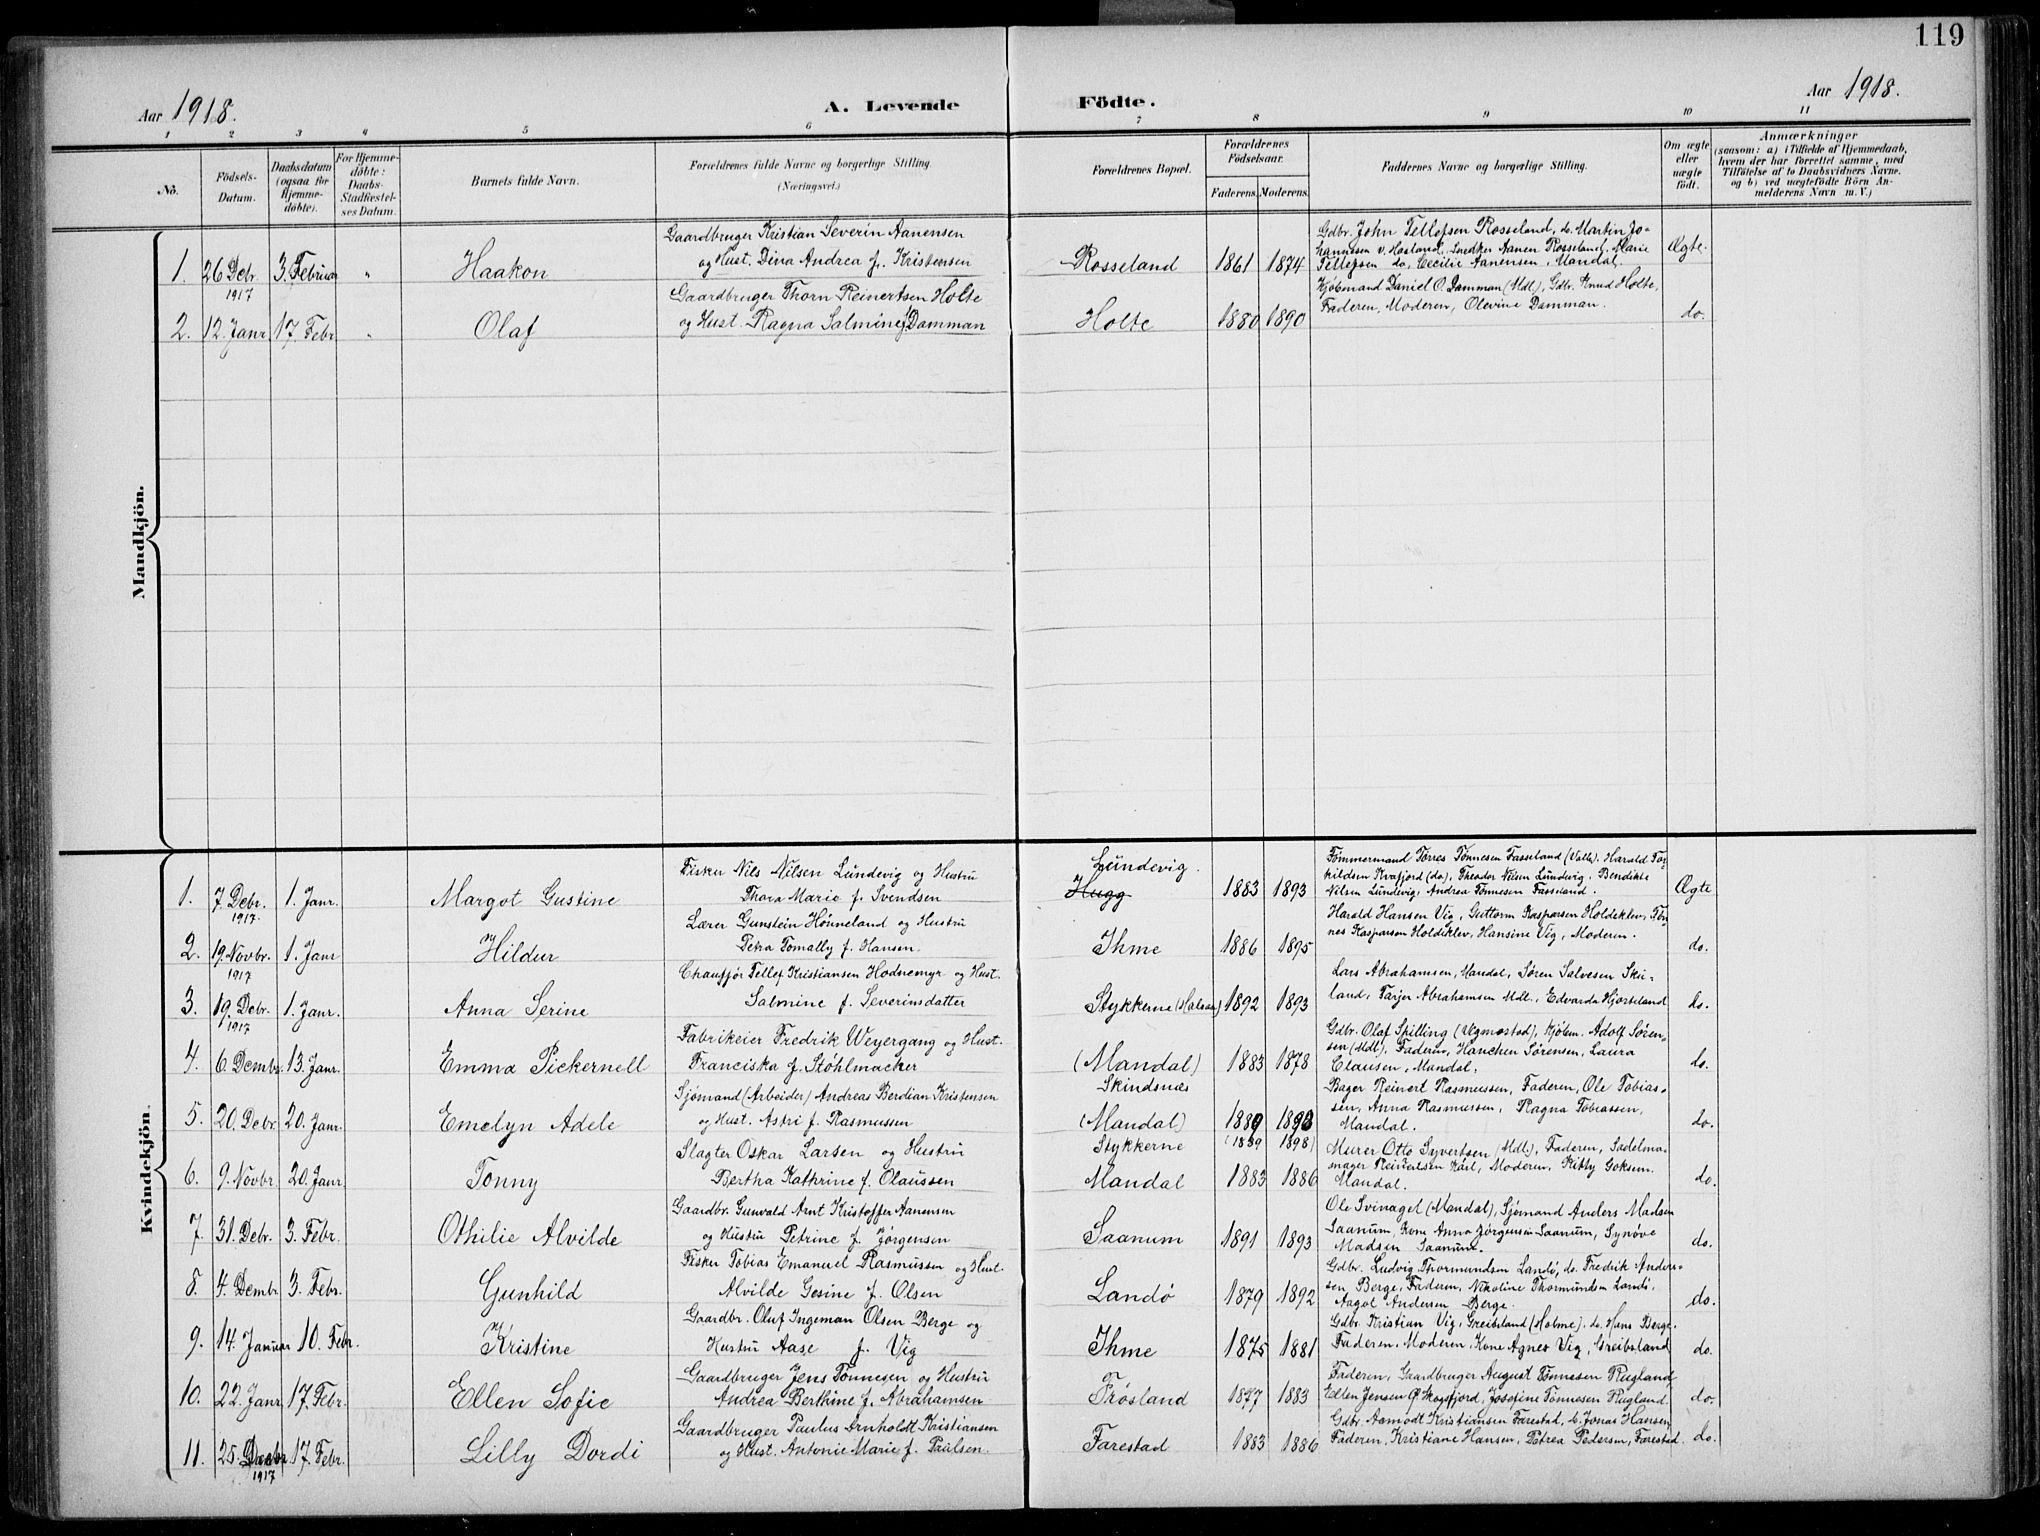 119
Aar 1918. A. Levende Födte. Aar 1918.
1 2 3 4 5 6 7 8 9 10 11
No.
Födsels-Datum.
Daabsdatum (ogsaa för Hjemme-döbte).
For Hjemme-döbte: Daabs-Stadfæstel-ses Datum.
Barnets fulde Navn.
Forældrenes fulde Navne og borgerlige Stilling.
(Næringsvei.)
Forældrenes Bopæl.
Forældrenes Födselsaar.
Faderens. Moderens.
Faddernes Navne og borgerlige Stilling.
Om ægte eller uægte födt.
Anmærkninger
(saasom: a) i Tilfælde af Hjemmedaab,
hvem der har forrettet samme, med
Tilföielse af to Daabsvidners Navne.
og b) ved uægtefödte Börn An-
melderens Navn m. V.)
Mandkjön.
1. 26 Debr. 1917 3. Februar " Haakon
Gaardbruger Kristian Severin Aanensen
og Hust. Dina Andrea f. Kristensen
Rosseland 1861 1874
Gdbr. John Tellefsen Rosseland, do. Martin Jo-
hannesen v. Hesland, Snedker Aanen Rosseland, Marie
Tellefsen do, Cecilie Aanensen, Mandal.
Ægte.
2. 12. Janr. 17. Febr. " Olaf
Gaardbruger Thorn Reinertsen Holte
og Hust. Ragna Salmine f. Damman
Holte 1880 1890
Kjøbmand Daniel O. Damman (Mdl), Gdbr. Knud Holte,
Faderen, Moderen, Olevine Damman.
do.
Kvindekjön.
1. 7. Debr. 1917. 1. Janr. Margot Gustine
Fisker Nils Nilsen Lundevig og Hustru
Thora Marie f. Svendsen
Lundevig.
Hugg 1883 1893
Tømmermand Torres Tønnesen Fasseland (Valle). Harald Tor-
kildsen Kvafjord (do), Theodor Nilsen Lundevig. Bendikte
Nilsen Lundevig, Andrea Tønnesen Fasseland.
Ægte
2. 19. Novbr. 1917 1. Janr Hildur
Lærer Gunstein Hønneland og Hustru
Petra Tomally f. Hansen.
Ihme 1886 1895
Harald Hansen Vig, Guttorm Kaspersen Holdeklev, Tøn-
nes Kaspersen Holdeklev, Hansine Vig, Moderen.
do.
3. 19. Debr. 1917 1. Janr. Anna Serine
Chauffør Tellef Kristiansen Hodnemyr og Hust.
Salmine f. Severinsdatter
Stykkerne (Halsaa) 1892 1893
Lars Abrahamsen, Mandal, Søren Salvesen Ski-
land, Tarjer Abrahamsen Mdl., Edvarda Hjorteland
do.
4. 6. Dembr. 13. Janr. Emma Pickernell
Fabrikeier Fredrik Weyergang og Hust.
Franciska f. Stöhlmacker
(Mandal) 1883 1878
Gdbr. Olaf Spilling (Vigmostad), Kjøbm. Adolf Søren-
sen (Mdl), Faderen, Hanchen Sørensen, Laura
Clausen, Mandal.
do.
5. 20. Debr. 20. Janr. Emelyn Adele
Sjømand (Arbeider) Andreas Berdian Kristensen
og Hust. Astri f. Rasmussen
Skindsnæs
(Mandal) 1889 1890
(1889 1898)
Bager Reinert Rasmussen, Faderen, Ole Tobias-
sen, Anna Rasmussen, Ragna Tobiassen,
Mandal.
do.
6. 9. Novbr. 20. Janr. Tonny
Slagter Oskar Larsen og Hustru
Bertha Kathrine f. Olaussen
Stykkerne
Mandal 1883 1886
Murer Otto Syvertsen (Mdl), Faderen, Sadelma-
mager Reinertsen Karl, Moderen, Kitty Goksem.
Mandal.
do.
7. 31. Debr. 3. Febr. Othilie Alvilde
Gaardbr. Gunvald Arnt Kristoffer Aanensen
og Hustru Petrine f. Jørgensen
Saanum 1891 1893
Ole Svinaget (Mandal), Sjømand Anders Madsen
Saanum, Kone Anna Jørgensen Saanum, Synøve
Madsen Saanum.
do.
8. 4. Dembr. 3. Febr. Gunhild
Fisker Tobias Emanuel Rasmussen og Hust.
Alvilde Gesine f. Olsen
Landö 1879 1892
Gdbr. Ludvig Thormundsen Landö, do. Fredrik Anders-
sen Berge, Faderen, Nikoline Thormundsen Landö,
Aagot Andersen Berge.
do.
9. 14. Januar 10. Febr. Kristine
Gaardbr. Oluf Ingeman Olsen Berge og
Hustru Aase f. Vig
Ihme 1875 1881
Gdbr. Kristian Vig, Greibsland (Holme). do. Hans Berge.
Faderen, Moderen, Kone Agnes Vig, Greibsland
do.
10. 22. Janr. 17. Febr. Ellen Sofie
Gaardbruger Jens Tønnesen og Hustru
Andrea Berthine f. Abrahamsen
Frösland 1877 1883
Faderen, Gaardbruger August Tønnesen Rugland,
Ellen Jensen Skogsfjord, Josefine Tønnesen Rugland.
do.
11. 25. Decbr 1917 17. Febr. Lilly Dordi
Gaardbruger Paulus Arnholdt Kristiansen
og Hust. Antonie Marie f. Paulsen.
Farestad 1883 1886
Gdbr. Aamodt Kristiansen Farestad, do. Jonas Hansen
Faderen, Kristiane Hansen, Petrea Pedersen, Farestad.
do.